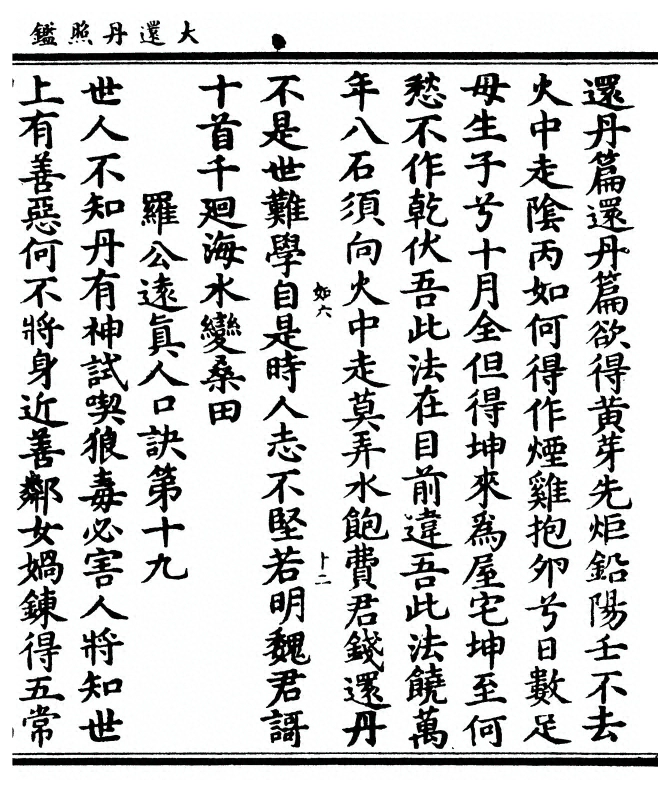 大還丹照鑑
還丹篇還丹篇欲得黃芽先炬鉛陽壬不去
火中走陰丙如何得作煙雞抱卵兮日數足
母生子兮十月全但得坤來為屋宅坤至何
愁不作乾伏吾此法在目前違吾此法饒萬
年八石須向火中走莫弄水飽費君錢還丹
不是世難學自是時人志不堅若明魏君謌
十首千廻海水變桑田
羅公遠真人口訣第十九
世人不知丹有神試喫狼毒必害人將知世
上有善惡何不將身近善鄰女媧鍊得五常
如六
十二